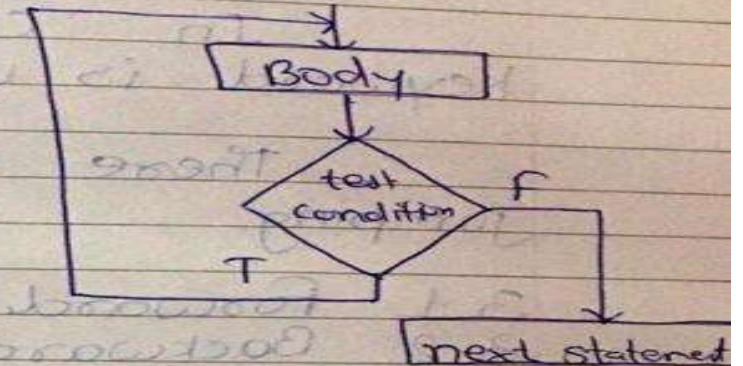 Body
test
condition
F
T
next statement